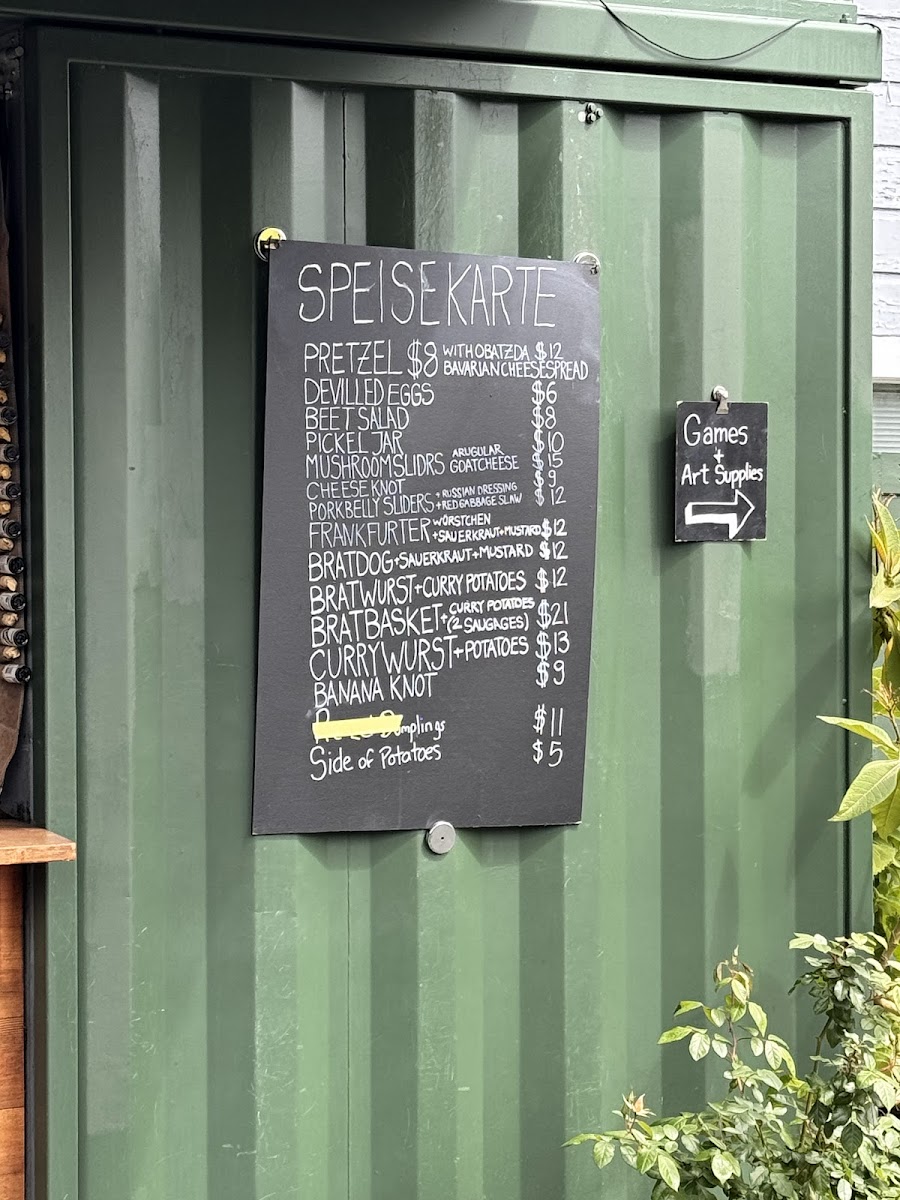 SPEISEKARTE
PRETZEL $8 WITH OBATZDA $12
BAVARIAN CHEESESPREAD
DEVILLED EGGS $6
BEET SALAD $8
PICKEL JAR $10
MUSHROOM SLIDRS ARUGULAR GOATCHEESE $15
CHEESE KNOT $9
PORKBELLY SLIDERS + RUSSIAN DRESSING + RED GABBAGE SLAW $12
FRANKFURTER WÖRSTCHEN + SAUERKRAUT + MUSTARD $12
BRATDOG + SAUERKRAUT + MUSTARD $12
BRATWURST + CURRY POTATOES $12
BRAT BASKET + CURRY POTATOES (2 SAUGAGES) $21
CURRYWURST + POTATOES $13
BANANA KNOT $9
mplings $11
Side of Potatoes $5
Games
+
Art Supplies